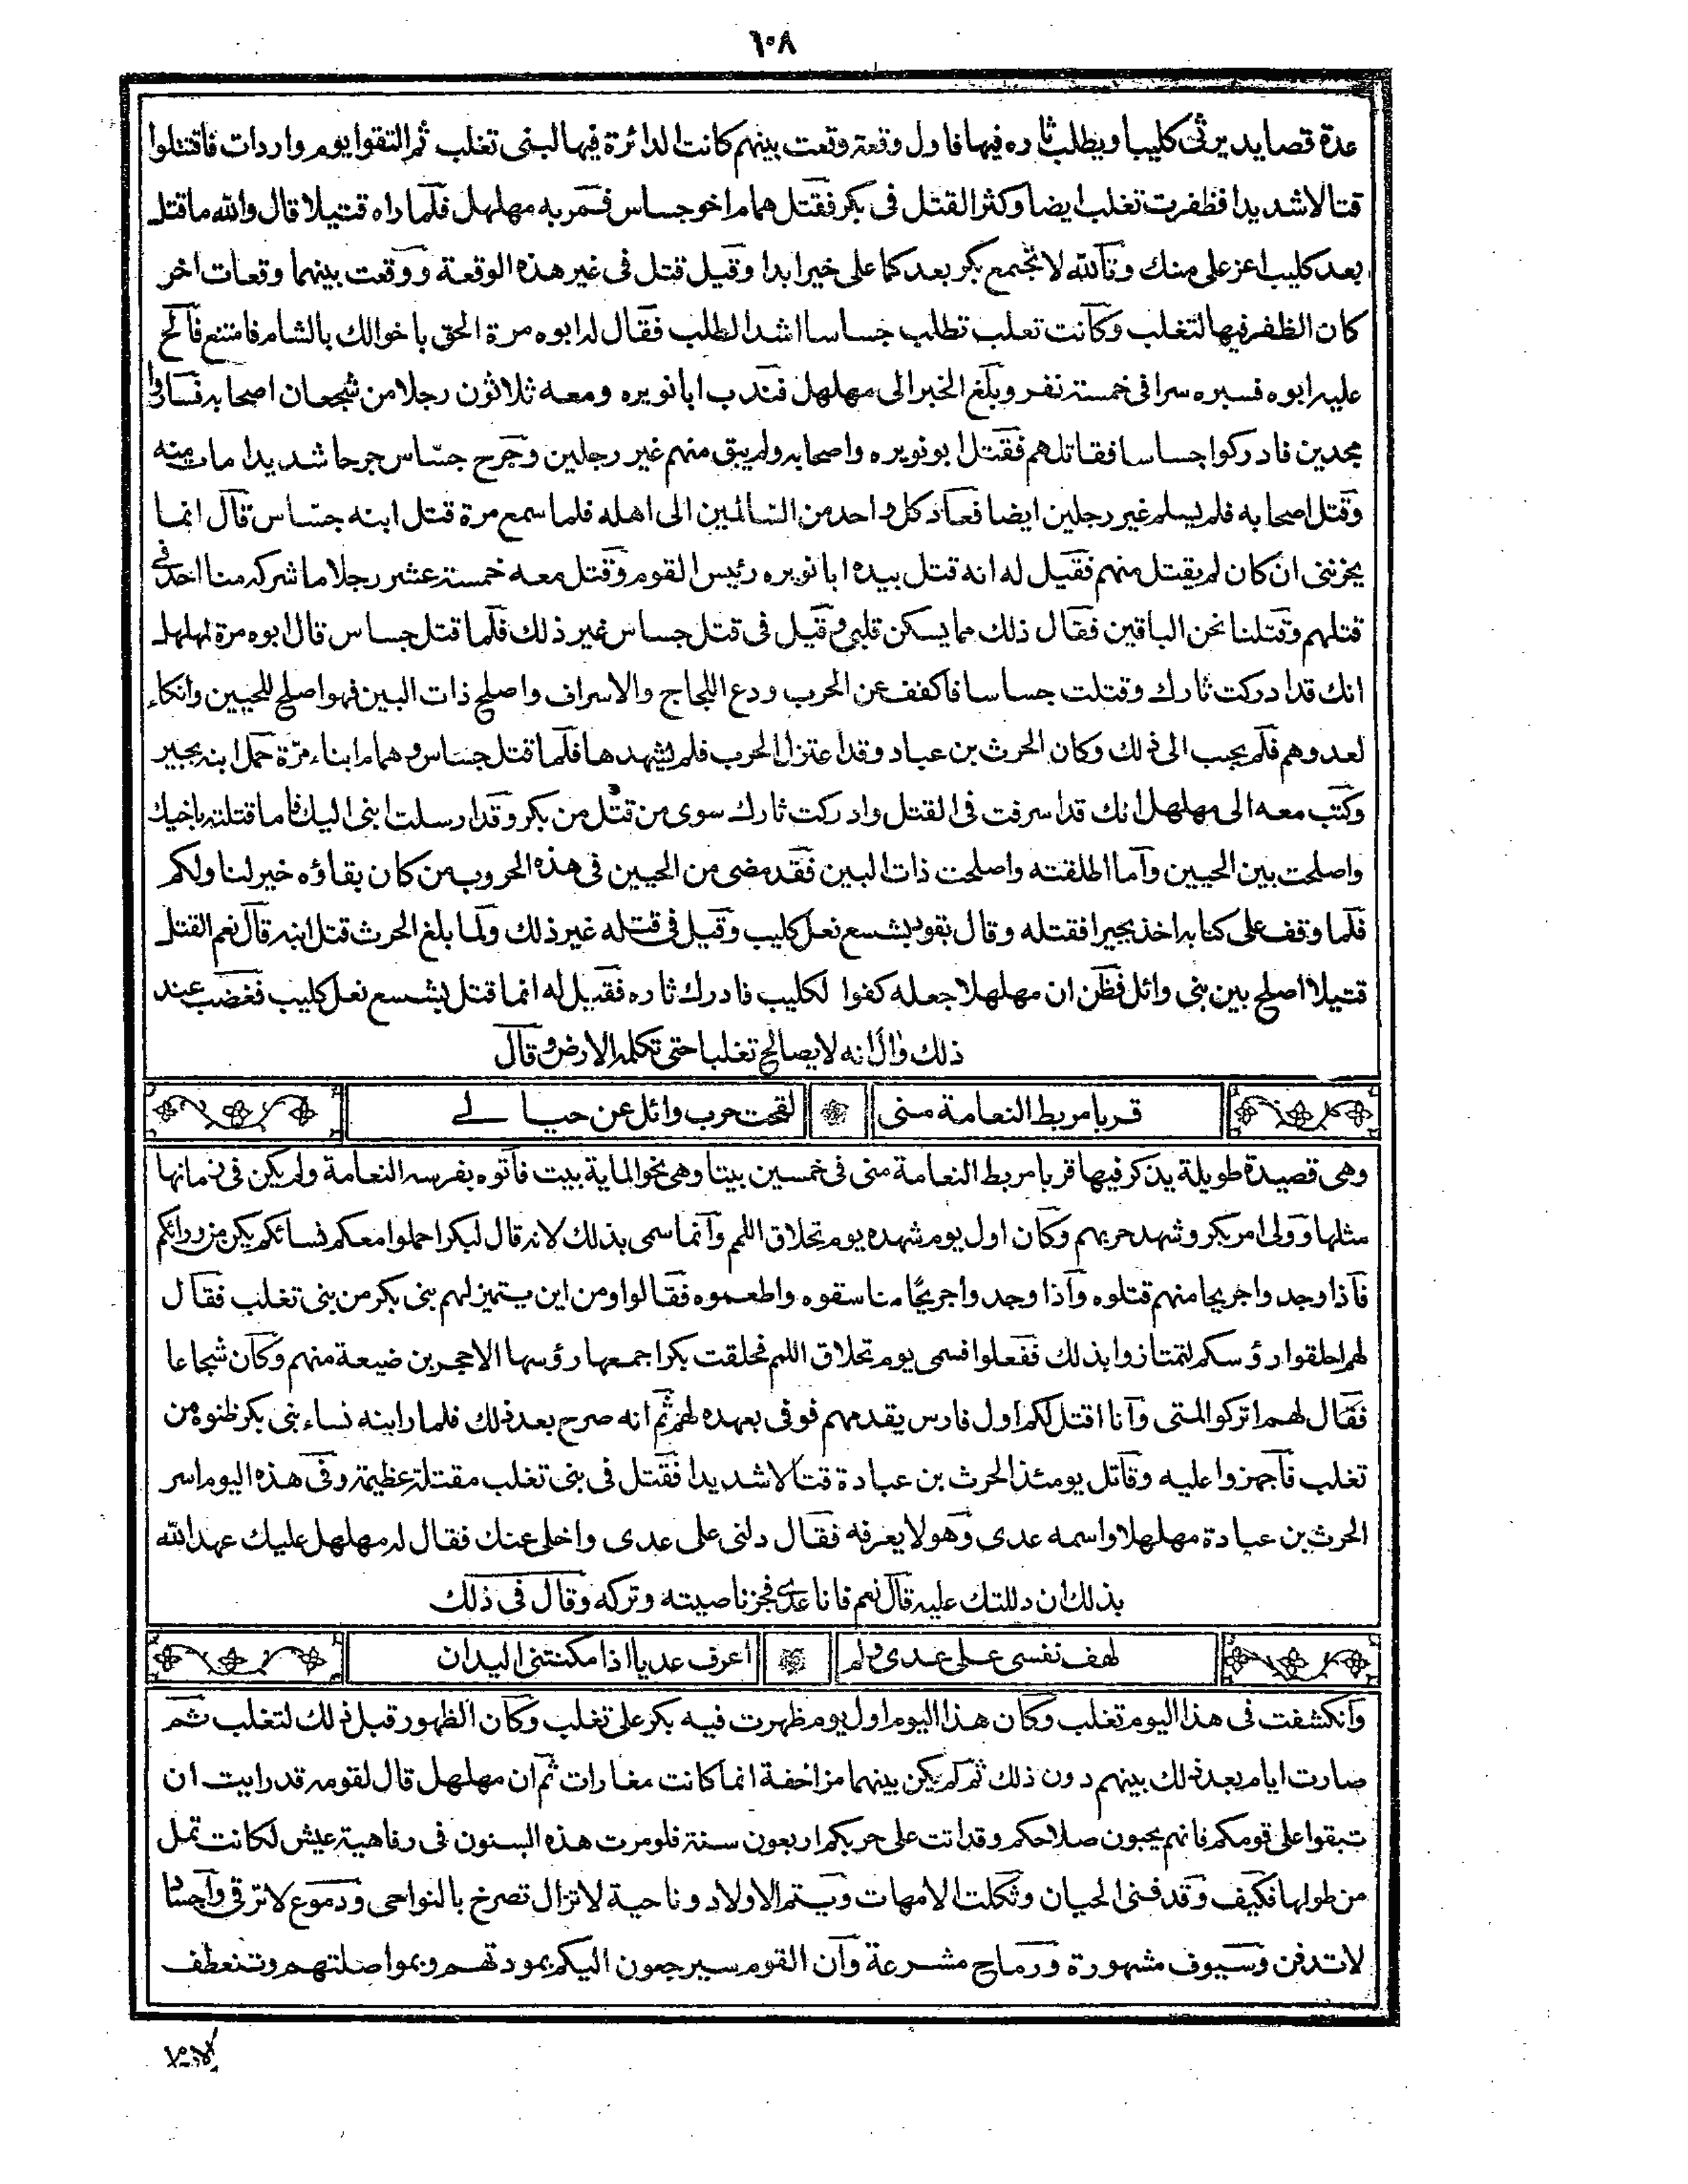 ١٠٨
عدة قصايد يرثى كليبا ويطلب ثاره فيها فاول وقعة وقعت بينهم كانت الدائرة فيها لبنى تغلب ثم التقوا يوم واردات فاقتتلوا
قتالا شديدا فظفرت تغلب ايضا وكثر القتل فى بكر فقتل همام اخو جساس فمر به مهلهل فلما راه قتيلا قال والله ما قتل
بعد كليب اعز على منك وتالله لا تجتمع بكر بعد كما على خير ابدا وقيل قتل فى غير هذه الوقعة ووقعت بينهما وقعات اخر
كان الظفر فيها لتغلب وكانت تعلب تطلب جساسا اشد الطلب فقال له ابوه مرة الحق باخوالك بالشام فامتنع فالح
عليه ابوه فسيره سرا فى خمسة نفر وبلغ الخبر الى مهلهل فندب ابا نويره ومعه ثلاثون رجلا من شجعان اصحابه فساروا
مجدين فادركوا جساسا فقاتلهم فقتل ابو نويره واصحابه ولم يبق منهم غير رجلين وجرح جساس جرحا شديدا مات منه
وقتل اصحابه فلم يسلم غير رجلين ايضا فعاد كل واحد من السالمين الى اهله فلما سمع مرة قتل ابنه جساس قال انما
يحزننى ان كان لم يقتل منهم فقيل له انه قتل بيده ابا نويره رئيس القوم وقتل معه خمسة عشر رجلا ما شركه منا احد فى
قتلهم وقتلنا نحن الباقين فقال ذلك مما يسكن قلبى وقيل فى قتل جساس غير ذلك فلما قتل جساس قال ابوه مرة لمهلهل
انك قد ادركت ثارك وقتلت جساسا فاكفف عن الحرب ودع اللجاج والاسراف واصلح ذات البين فهو اصلح للحيين وانكاء
لعدوهم فلم يجب الى ذلك وكان الحرث بن عباد وقد اعتزل الحرب فلم يشهدها فلما قتل جساس وهمام ابناء مرة حمل ابنه بجير
وكتب معه الى مهلهل انك قد اسرفت فى القتل وادركت ثارك سوى من قتل من بكر وقد ارسلت ابنى اليك فاما قتلته باخيك
واصلحت بين الحيين واما اطلقته واصلحت ذات البين فقد مضى من الحيين فى هذه الحروب من كان بقاؤه خير لنا ولكم
فلما وقف على كتابه اخذ بجيرا فقتله وقال بؤ بشسع نعل كليب وقيل فى قتله غير ذلك ولما بلغ الحرث قتل ابنه قال نعم القتل
قتيلا اصلح بين بنى وائل فظن ان مهلهلا جعله كفوا لكليب فادرك ثاره فقيل له انما قتل بشسع نعل كليب فغضب عند
ذلك وال انه لا يصالح تغلبا حتى تكلمه الارض وقال
قربا مربط النعامة منى لقحت حرب وائل عن حيالى
وهى قصيدة طويلة يذكر فيها قربا مربط النعامة منى فى خمسين بيتا وهى نحو الماية بيت فاتوه بفرسه النعامة ولم يكن فى زمانها
مثلها وولى امر بكر وشهد حربهم وكان اول يوم شهده يوم تحلاق اللمم وانما سمى بذلك لانه قال لبكر احملوا معكم نسائكم يكن من ورائكم
فاذا وجد واجريحا منهم قتلوه واذا وجد واجريحا منا سقوه واطعموه فقالوا ومن اين يتميز لهم بنى بكر من بنى تغلب فقال
لهم احلقوا رؤسكم لتمتازوا بذلك ففعلوا فسمى يوم تحلاق اللمم فحلقت بكر اجمعها رؤسها الا حجر بن ضيعة منهم وكان شجاعا
فقال لهم اتركوا لمتى وانا اقتل لكم اول فارس يقدمهم فوفى بعهده لهم ثم انه صرح بعد ذلك فلما راينه نساء بنى بكر ظنوه من
تغلب فاجهزوا عليه وقاتل يومئذ الحرث بن عبادة قتالا شديدا فقتل فى بنى تغلب مقتلة عظيمة وفى هذه اليوم اسر
الحرث بن عبادة مهلهلا واسمه عدى وهو لا يعرفه فقال دلنى على عدى واخلى عنك فقال له مهلهل عليك عهد الله
بذلك ان دللتك عليه قال نعم فانا عدى فجز ناصيته وتركه وقال فى ذلك
لهف نفسى على عدى ولم اعرف عديا اذا مكنتنى اليدان
وانكشفت فى هذا اليوم تغلب وكان هذا اليوم اول يوم ظهرت فيه بكر على تغلب وكان الظهور قبل ذلك لتغلب ثم
صارت ايام بعد ذلك بينهم دون ذلك ثم لم يكن بينهما مزاحفة انما كانت مغارات ثم ان مهلهل قال لقومه قد رايت ان
تبقوا على قومكم فانهم يحبون صلاحكم وقد اتت على حربكم اربعون سنة فلو مرت هذه السنون فى رفاهية عيش لكانت تمل
من طولها فكيف وقد فنى الحيان وثكلت الامهات ويتم الاولاد وناحية لا تزال تصرخ بالنواحى ودموع لا ترقى واجسادا
لا تدفن وسيوف مشهورة ورماح مشرعة وان القوم سيرجعون اليكم بمودتهم وبمواصلتهم وتنعطف